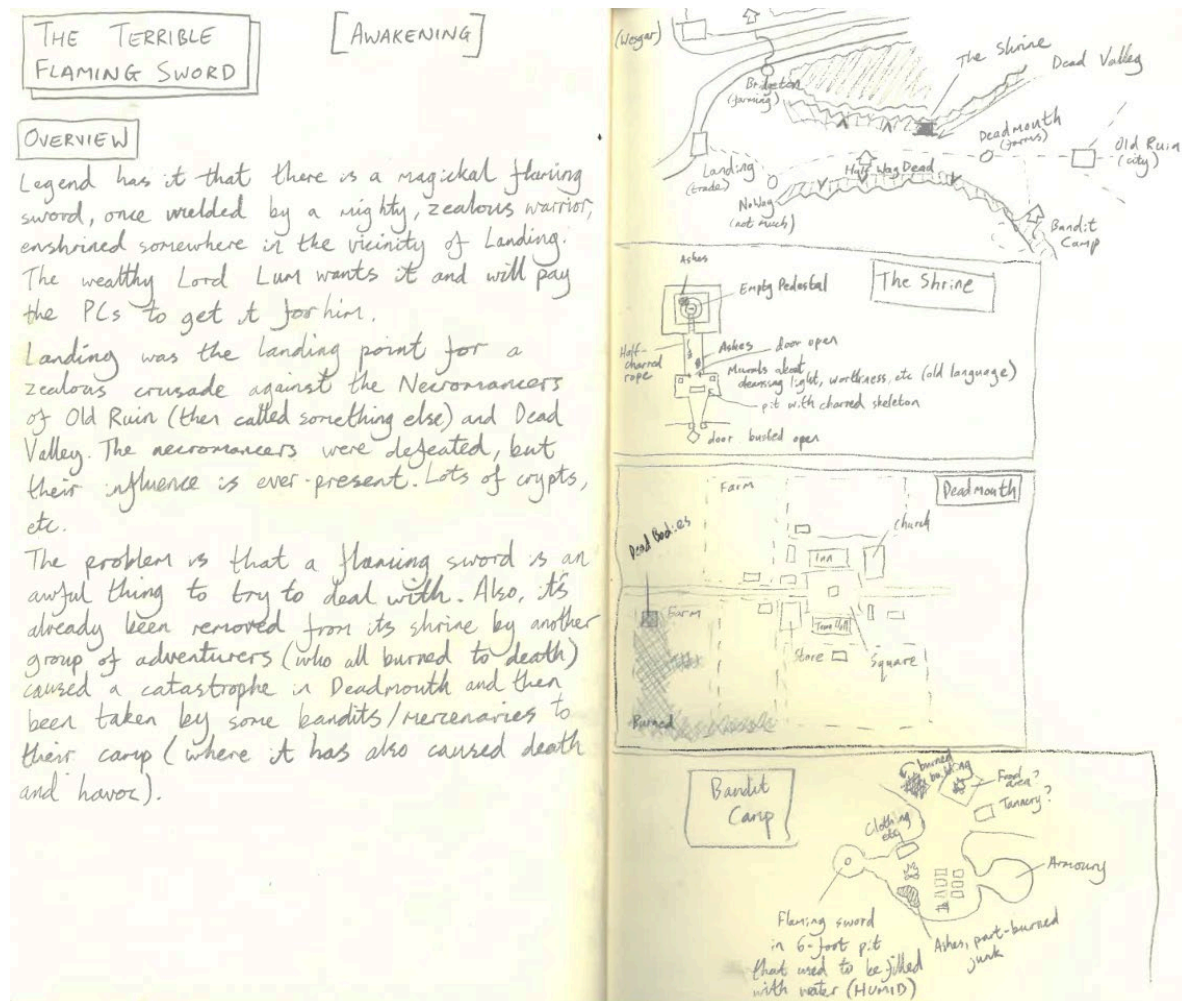 THE TERRIBLE
FLAMING SWORD
[AWAKENING]
OVERVIEW
Legend has it that there is a magickal flaming
sword, once wielded by a mighty, zealous warrior,
enshrined somewhere in the vicinity of Landing.
The wealthy Lord Lum wants it and will pay
the PCs to get it for him.
Landing was the landing point for a
zealous crusade against the Necromancers
of Old Ruin (then called something else) and Dead
Valley. The necromancers were defeated, but
their influence is ever-present. Lots of crypts,
etc.
The problem is that a flaming sword is an
awful thing to try to deal with. Also, it's
already been removed from its shrine by another
group of adventurers (who all burned to death)
caused a catastrophe in Deadmouth and then
been taken by some bandits/mercenaries to
their camp (where it has also caused death
and havoc).
(Wesgar)
The Shrine
Dead Valley
Bridgeton
(farming)
Deadmouth
(farms)
Old Ruin
(city)
Landing
(trade)
Half-Way Dead
NoWay
(not much)
Bandit
Camp
The Shrine
Ashes
Empty Pedestal
Half-
charred
rope
Ashes
door open
Murals about
cleansing light, worthiness, etc (old language)
pit with charred skeleton
door busted open
Deadmouth
Farm
Dead Bodies
Church
Inn
Farm
Town Hall
Store
Square
Burned
Bandit
Camp
burned
building
Food
area?
Tannery?
Clothing
etc
Armoury
Flaming sword
in 6-foot pit
that used to be filled
with water (HUMID)
Ashes, part-burned
junk